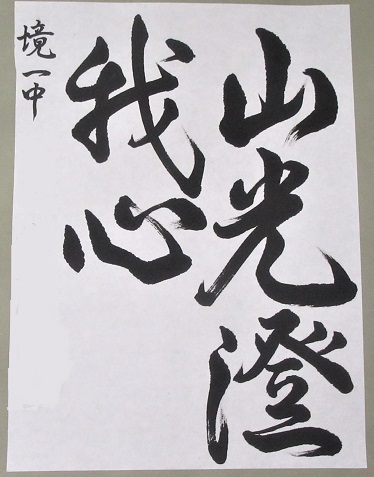 山光澄
我心
境一中